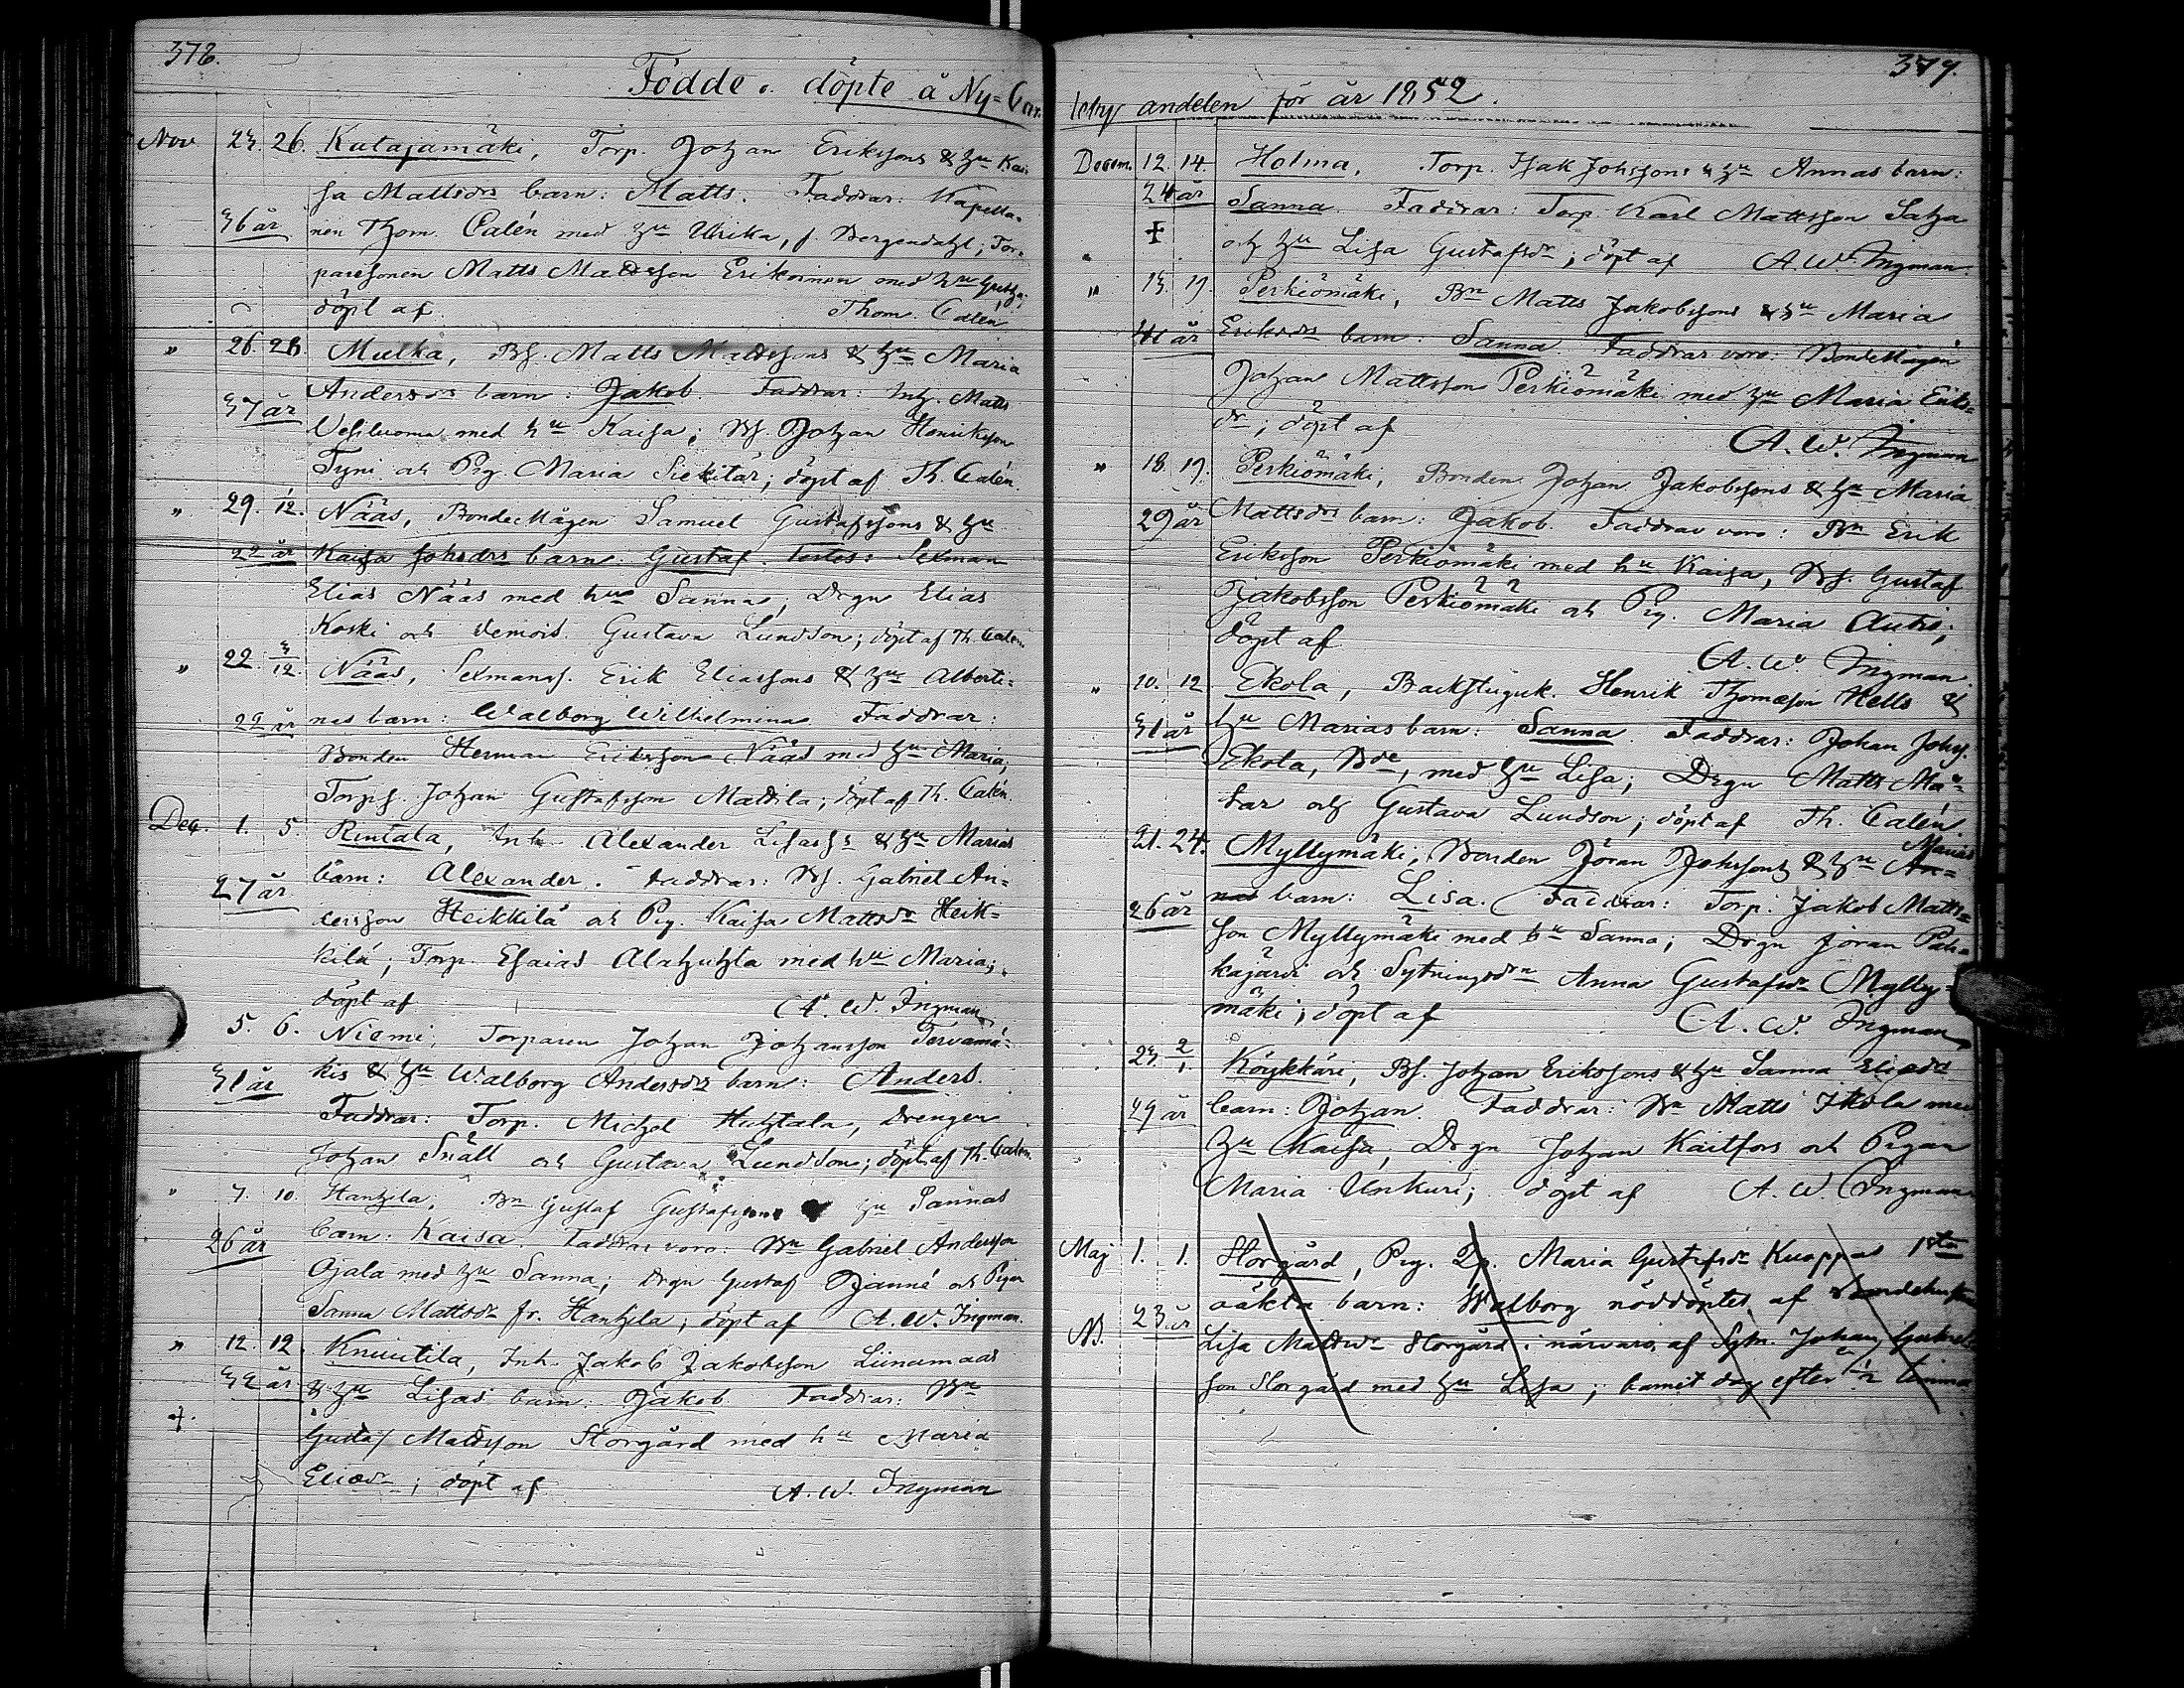 378.
Födde o. döpte å Ny-Car
Nov 23. 26. Katajamäki, Torp. Johan Erikssons & hu Kai-
sa Mattsdrs barn: Matts. Faddrar: Kapella-
36 år nen Thom. Calén med hu Ulrika, f. Bergendahl; Tor-
paresonen Matts Mattsson med hu
döpt af Thom. Calén
" 26. 28 Mulka, Bs. Matts Mattssons & hu Maria
Andersdrs barn: Jakob. Faddrar: Inh. Matts
37 år Vesiluoma med hu Kaisa; Bs. Johan Henriksson
Tyni och Pig. Maria döpt af Th. Calén.
" 29. 1/12. Nääs, Bondemågen Samuel Gustafssons & hu
22 år Kaisa Johsdrs barn: Gustaf. Testes: Sexman
Elias Nääs med hu Sanna, Drgn Elias
Koski och demois. Gustava Lundson; döpt af Th. Calén
" 22. 3/12. Nääs, Sexmanss. Erik Eliassons & hu Alberti-
22 år nas barn: Walborg Wilhelmina Faddrar:
Bonden Herman Eriksson Nääs med hu Maria;
Torps. Johan Gustafsson Mattila; döpt af Th. Calén.
Dec. 1. 5. Rintala, Inh. Alexander & hu Marias
27 år barn: Alexander. Faddrar: Bs. Gabriel An-
dersson Heikkilä och Pig. Kaisa Mattsdr Heik-
kilä; Torp. Esaias Alahuhta med hu Maria;
döpt af A. W. Ingman
5. 6. Niemi, Torparen Johan Johansson Tervamä-
31 år kis & hu Walborg Andersdrs barn: Anders.
Faddrar: Torp. Michel Huhtala, Drengen
Johan Snäll och Gustava Lundson; döpt af Th. Calén.
" 7. 10. Hanhila, Bn Gustaf Gustafssons hu Sannas
26 år barn: Kaisa. Faddrar voro: Bn Gabriel Andersson
Ojala med hu Sanna; Drgn Gustaf och Pigan
Sanna Mattsdr fr. Hanhila; döpt af A. W. Ingman.
" 12. 12. Knuutila, Inh. Jakob Jakobsson Liinamaas
32 år & hu Lisas barn: Jakob Faddrar: Bn
+. Gustaf Mattsson Storgård med hu Maria
Eliasdr; döpt af A. W. Ingman
379.
leby andelen för år 1852.
Decem. 12. 14. Holma, Torp. Isak Johssons & hu Annas barn:
24 år Sanna. Faddrar: Torp. Karl Mattsson
+ och hu Lisa Gustafsdr; döpt af A. W. Ingman.
" 15. 19. Perkiömäki, Bn Matts Jakobssons & hu Maria
41 år Eriksdrs barn: Sanna. Faddrar voro: Bondemågen
Johan Mattsson Perkiömäki med hu Maria Eriks-
dr; döpt af A. W. Ingman
" 18. 19. Perkiömäki, Bonden Johan Jakobssons & hu Maria
29 år Mattsdrs barn: Jakob. Faddrar voro: Bn Erik
Eriksson Perkiömäki med hu Kaisa, Bs. Gustaf
Jakobsson Perkiömäki och Pig. Maria Autio;
döpt af A. W. Ingman
" 10. 12 Ekola, Backstuguk. Henrik Thomasson Hells &
31 år hu Marias barn: Sanna. Faddrar: Johan Johs.
Ekola, Bde, med hu Lisa; Drgn Matts Mä-
tar och Gustava Lundson; döpt af Th. Calén
21. 24. Myllymäki, Bonden Jöran Johssons & hu An- Marias
26 år nas barn: Lisa. Faddrar: Torp. Jakob Matts-
son Myllymäki med hu Sanna; Drgn Jöran Pah-
kajärvi och Sytningsdrn Anna Gustafsdr Mylly-
mäki; döpt af A. W. Ingman
23. 2/1. Köykkäri, Bs. Johan Erikssons & hu Sanna Eliasds
29 år barn: Johan. Faddrar: Bn Matts Ikola med
hu Kaisa, Drgn Johan Kaitfors och Pigan
Maria Unkuri; döpt af A. W. Ingman
Maj 1. 1. Storgård, Pig. Maria Gustafsdr Knappas 1sta
23 år oäkta barn: Walborg nöddöptes af Bondehustru
NB. Lisa Mattsdr Storgård i närvaro af Sytn. Johan Gabriels-
son Storgård med hu Lisa; barnet dog efter 1/2 timma